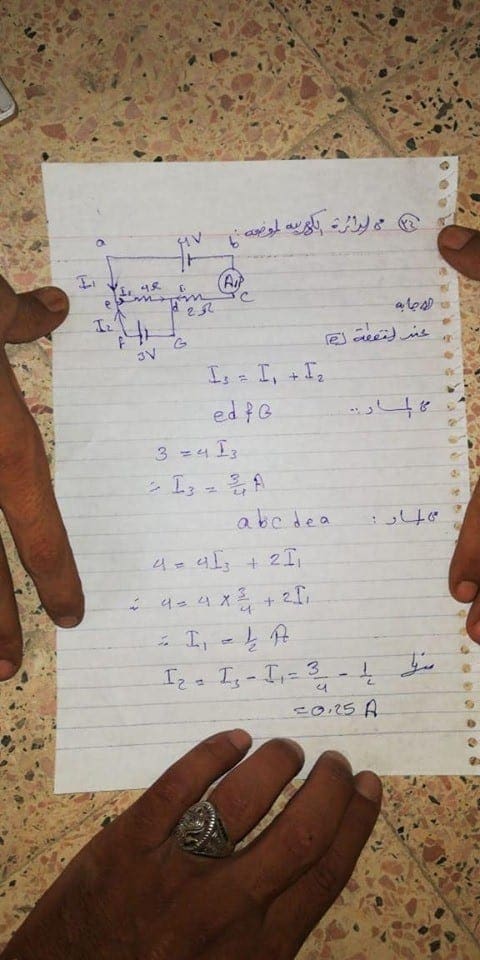 ٢٤ في الدائرة الكهربية الموضحة:
a 4V b
I₁ A₁
e I₃ 4Ω d I₁ 2Ω C
I₂
F 3V G
الاجابه
عند النقطة [e]
I₃ = I₁ + I₂
في المسار: edfG
3 = 4I₃
∴ I₃ = 3/4 A
في المسار: abcdea
4 = 4I₃ + 2I₁
∴ 4 = 4 × 3/4 + 2I₁
∴ I₁ = 1/2 A
I₂ = I₃ - I₁ = 3/4 - 1/2
= 0.25 A